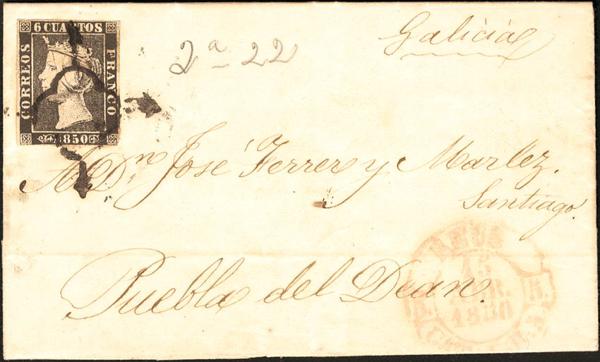 6 CUARTOS
CORREOS
FRANCO
850
2ª 22
Galicia
A Dn. José Ferrer y Marlez.
Santiago.
Puebla del Dean.
REUS
15
1850